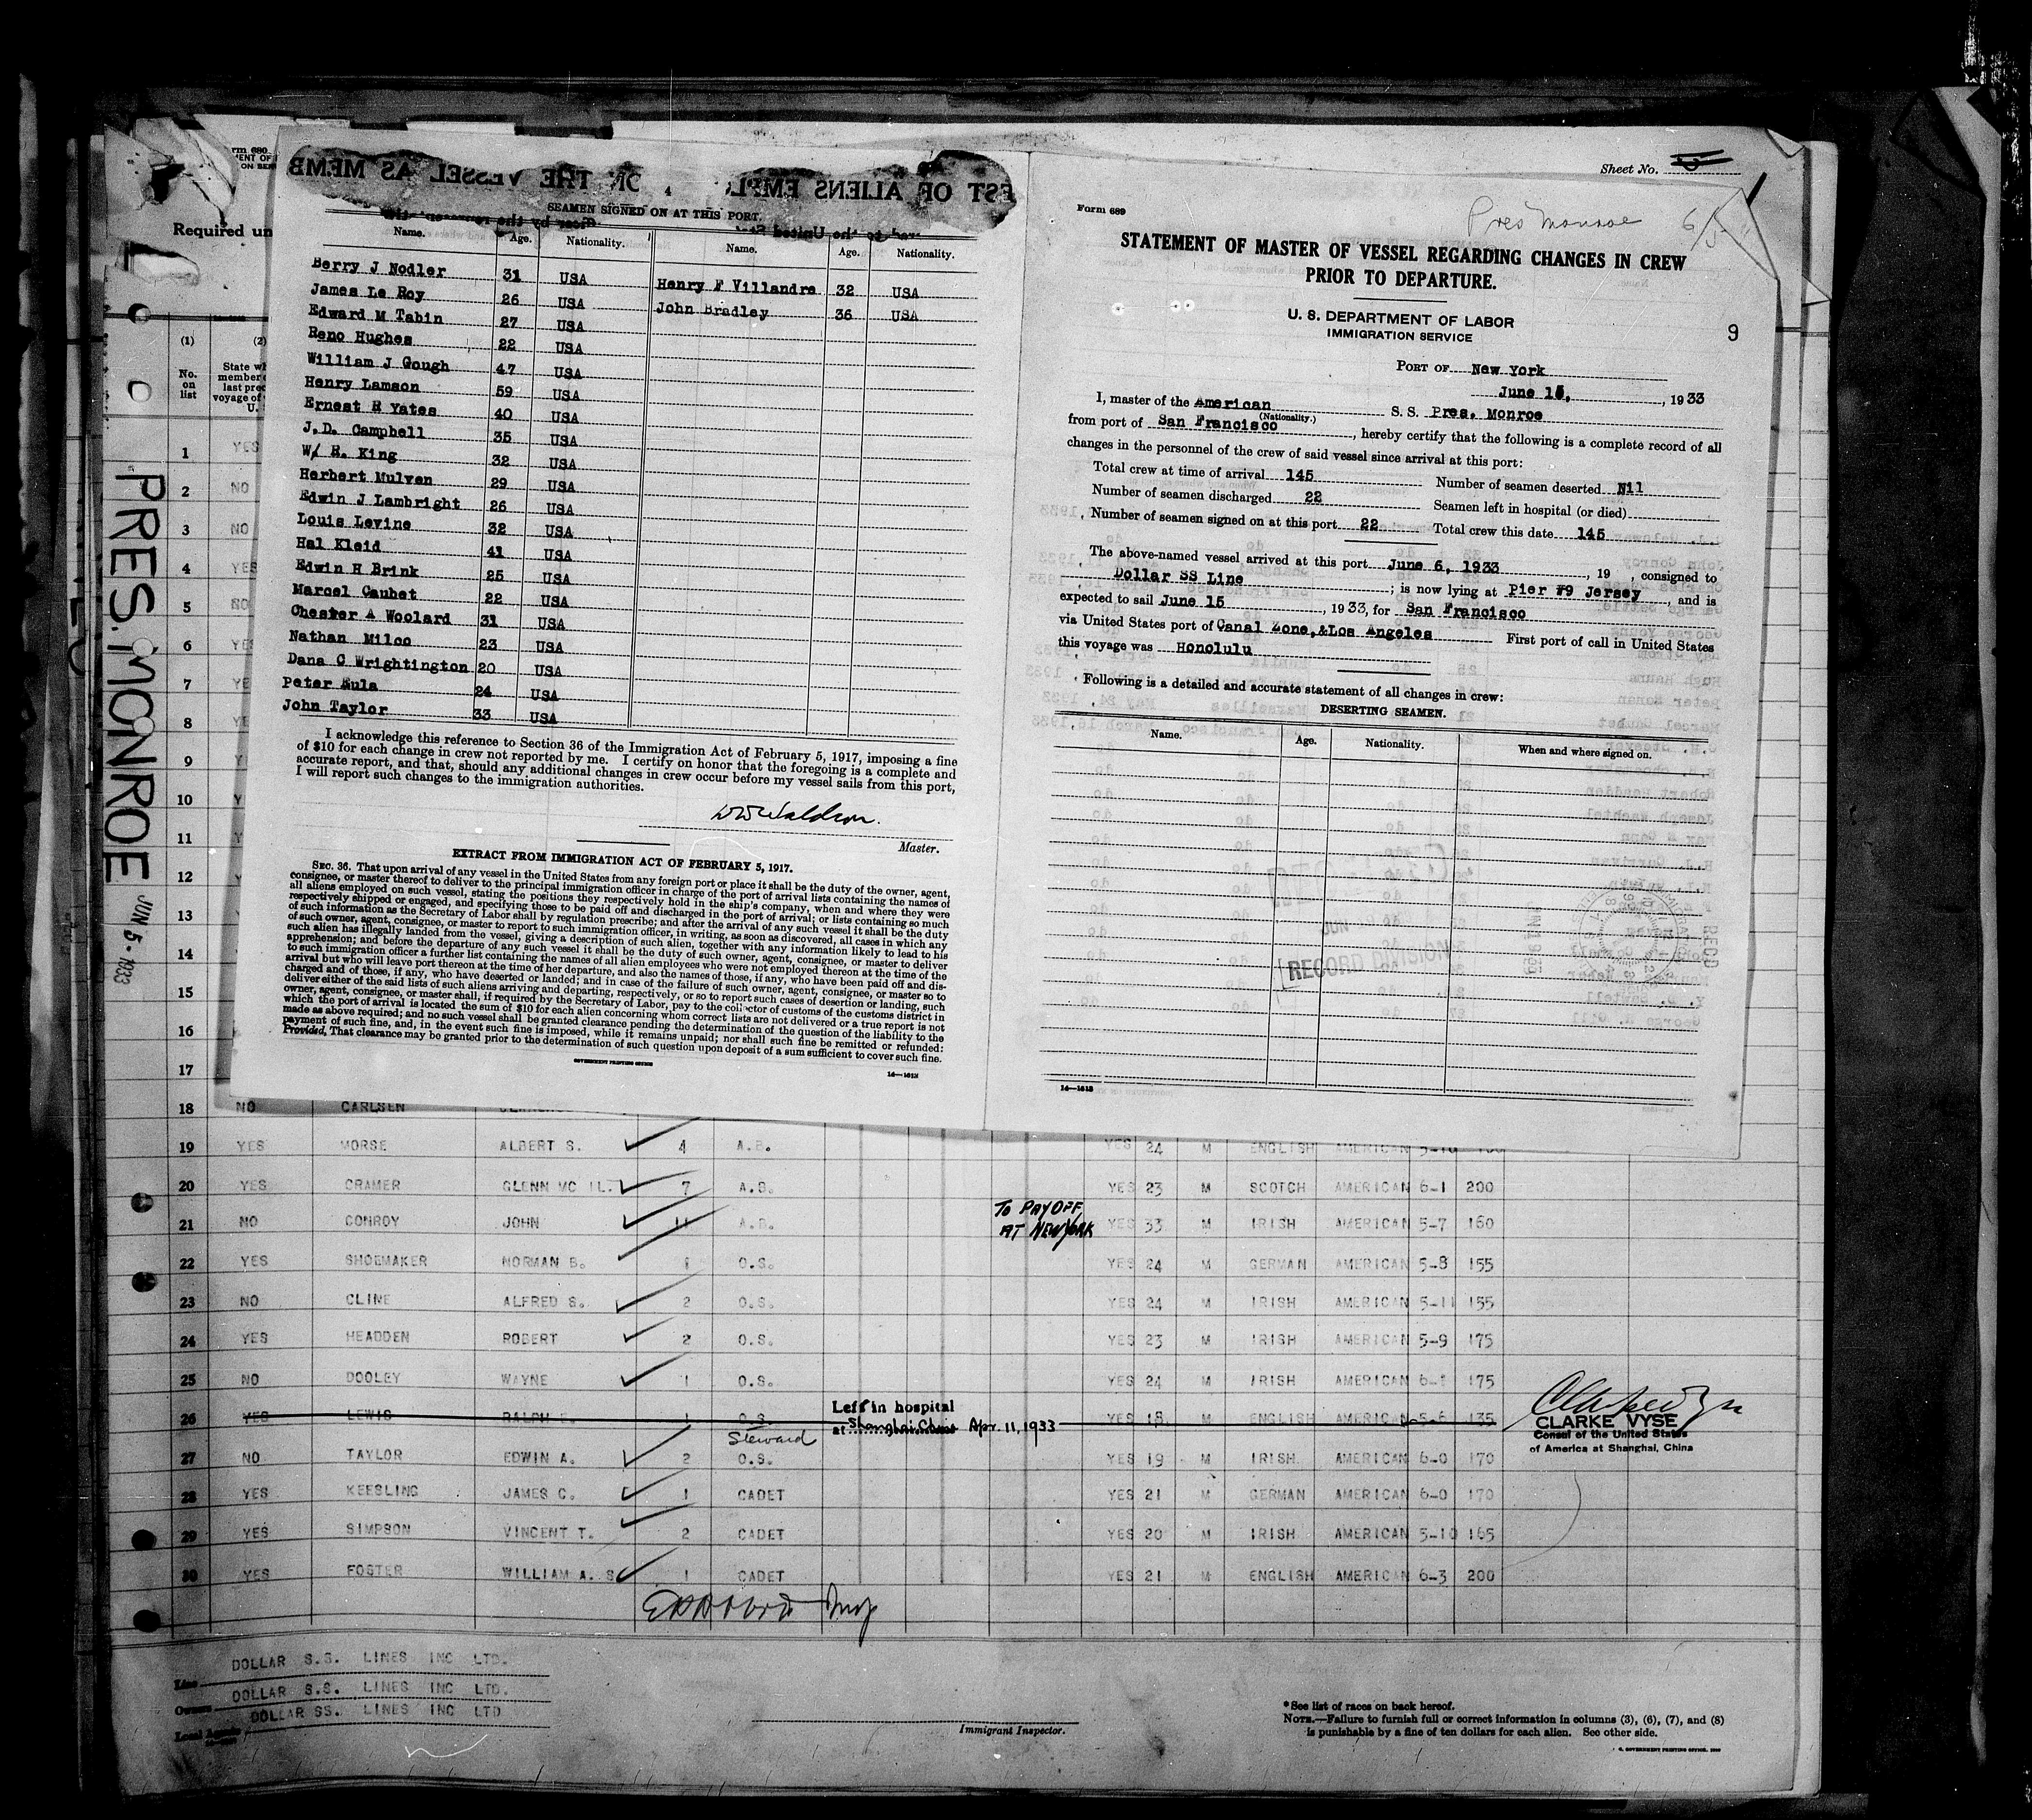 Form 680
Required un
(1)
(2)
No. on list
SEAMEN SIGNED ON AT THIS PORT.
Name. Age. Nationality. Name. Age. Nationality.
Berry J Nodler 31 USA Henry F Villandre 32 USA
James Le Roy 26 USA John Bradley 36 USA
Edward M Tabin 27 USA
Reno Hughes 22 USA
William J Gough 47 USA
Henry Lamson 59 USA
Ernest R Yates 40 USA
J.D. Campbell 35 USA
W/ R. King 32 USA
Herbert Mulven 29 USA
Edwin J Lambright 26 USA
Louis Levine 32 USA
Hal Kleid 41 USA
Edwin H Brink 25 USA
Marcel Caubet 22 USA
Chester A Woolard 31 USA
Nathan Milco 23 USA
Dana C Wrightington 20 USA
Peter Hula 24 USA
John Taylor 33 USA
I acknowledge this reference to Section 36 of the Immigration Act of February 5, 1917, imposing a fine
of $10 for each change in crew not reported by me. I certify on honor that the foregoing is a complete and
accurate report, and that, should any additional changes in crew occur before my vessel sails from this port,
I will report such changes to the immigration authorities.
Master.
EXTRACT FROM IMMIGRATION ACT OF FEBRUARY 5, 1917.
SEC. 36. That upon arrival of any vessel in the United States from any foreign port or place it shall be the duty of the owner, agent,
consignee, or master thereof to deliver to the principal immigration officer in charge of the port of arrival lists containing the names of
all aliens employed on such vessel, stating the positions they respectively hold in the ship's company, when and where they were
respectively shipped or engaged, and specifying those to be paid off and discharged in the port of arrival; or lists containing so much
of such information as the Secretary of Labor shall by regulation prescribe; and after the arrival of any such vessel it shall be the duty
of such owner, agent, consignee, or master to report to such immigration officer, in writing, as soon as discovered, all cases in which any
such alien has illegally landed from the vessel, giving a description of such alien, together with any information likely to lead to his
apprehension; and before the departure of any such vessel it shall be the duty of such owner, agent, consignee, or master to deliver
to such immigration officer a further list containing the names of all alien employees who were not employed thereon at the time of the
arrival but who will leave port thereon at the time of her departure, and also the names of those, if any, who have been paid off and dis-
charged and of those, if any, who have deserted or landed; and in case of the failure of such owner, agent, consignee, or master so to
deliver either of the said lists of such aliens arriving and departing, respectively, or so to report such cases of desertion or landing, such
owner, agent, consignee, or master shall, if required by the Secretary of Labor, pay to the collector of customs of the customs district in
which the port of arrival is located the sum of $10 for each alien concerning whom correct lists are not delivered or a true report is not
made as above required; and no such vessel shall be granted clearance pending the determination of the question of the liability to the
payment of such fine, and, in the event such fine is imposed, while it remains unpaid; nor shall such fine be remitted or refunded:
Provided, That clearance may be granted prior to the determination of such question upon deposit of a sum sufficient to cover such fine.
GOVERNMENT PRINTING OFFICE
14—1613
Sheet No.
Form 689
Pres Monroe 6/5
STATEMENT OF MASTER OF VESSEL REGARDING CHANGES IN CREW
PRIOR TO DEPARTURE.
U. S. DEPARTMENT OF LABOR
IMMIGRATION SERVICE
9
PORT OF New York
June 15, , 1933
I, master of the American S. S. Pres. Monroe
(Nationality.)
from port of San Francisco , hereby certify that the following is a complete record of all
changes in the personnel of the crew of said vessel since arrival at this port:
Total crew at time of arrival 145 Number of seamen deserted Nil
Number of seamen discharged 22 Seamen left in hospital (or died)
Number of seamen signed on at this port 22 Total crew this date 145
The above-named vessel arrived at this port June 6, 1933 , 19 , consigned to
Dollar SS Line ; is now lying at Pier #9 Jersey , and is
expected to sail June 15 , 1933, for San Francisco
via United States port of Canal Zone,&Los Angeles First port of call in United States
this voyage was Honolulu
Following is a detailed and accurate statement of all changes in crew:
DESERTING SEAMEN.
Name. Age. Nationality. When and where signed on.
RECORD DIVISION
14—1613
PRES. MONROE JUN 5 - 1933
1 YES
2 NO
3 NO
4 YES
5 NO
6 YES
7 YE
8 YE
9 Y
10 Y
11
12
13
14
15
16
17
18 NO CARLSEN
19 YES MORSE ALBERT S. 4 A.B. YES 24 M ENGLISH AMERICAN 5-10
20 YES CRAMER GLENN MC IL. 7 A.B. YES 23 M SCOTCH AMERICAN 6-1 200
21 NO CONROY JOHN 11 A.B. TO PAY OFF AT NEW YORK YES 33 M IRISH AMERICAN 5-7 160
22 YES SHOEMAKER NORMAN B. 1 O.S. YES 24 M GERMAN AMERICAN 5-8 155
23 NO CLINE ALFRED S. 2 O.S. YES 24 M IRISH AMERICAN 5-11 155
24 YES HEADDEN ROBERT 2 O.S. YES 23 M IRISH AMERICAN 5-9 175
25 NO DOOLEY WAYNE 1 O.S. YES 24 M IRISH AMERICAN 6-1 175
26 YES LEWIS RALPH E. 1 O.S. Left in hospital at Shanghai, China Apr. 11, 1933 YES 18 M ENGLISH AMERICAN 5-6 135
CLARKE VYSE
Consul of the United States
of America at Shanghai, China
Steward
27 NO TAYLOR EDWIN A. 2 O.S. YES 19 M IRISH AMERICAN 6-0 170
28 YES KEESLING JAMES C. 1 CADET YES 21 M GERMAN AMERICAN 6-0 170
29 YES SIMPSON VINCENT T. 2 CADET YES 20 M IRISH AMERICAN 5-10 165
30 YES FOSTER WILLIAM A. S 1 CADET YES 21 M ENGLISH AMERICAN 6-3 200
Line DOLLAR S.S. LINES INC LTD.
Owners DOLLAR S.S. LINES INC LTD.
Local Agents DOLLAR SS. LINES INC LTD
Immigrant Inspector.
*See list of races on back hereof.
NOTE.—Failure to furnish full or correct information in columns (3), (6), (7), and (8)
is punishable by a fine of ten dollars for each alien. See other side.